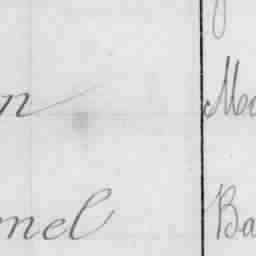 n Mo
nel Ba